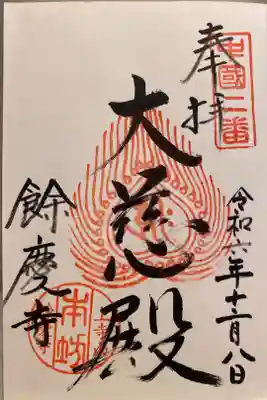 中國二番
奉拝
令和六年十二月八日
大慈殿
餘慶寺
本坊